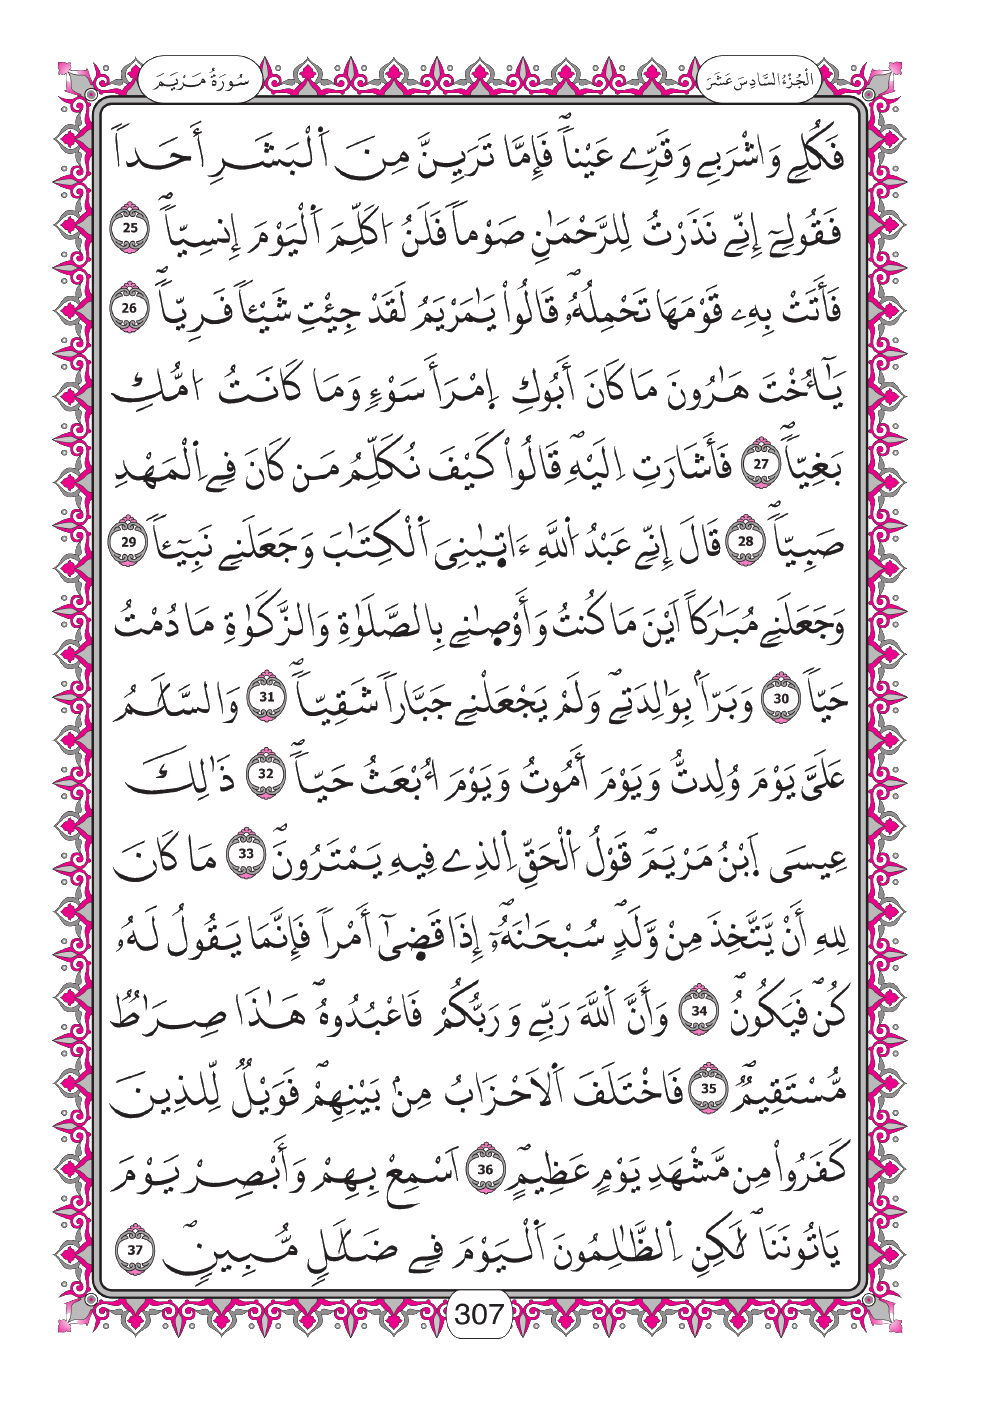 سُورَةُ مَرْيَمَ
الْجُزْءُ السَّادِسَ عَشَرَ
فَكُلِے وَاشْرَبِے وَقَرِّے عَيْناٗۖ فَإِمَّا تَرَيِنَّ مِنَ اَ۬لْبَشَرِ أَحَداٗ
فَقُولِےٓ إِنِّے نَذَرْتُ لِلرَّحْمَٰنِ صَوْماٗ فَلَنُ ا۟كَلِّمَ اَ۬لْيَوْمَ إِنسِيّاٗۖ 25
فَأَتَتْ بِهِۦ قَوْمَهَا تَحْمِلُهُۥۖ قَالُواْ يَٰمَرْيَمُ لَقَدْ جِئْتِ شَيْـٔاٗ فَرِيّاٗۖ 26
يَٰٓأُخْتَ هَٰرُونَ مَا كَانَ أَبُوكِ اِ۪مْرَأَ سَوْءٖ وَمَا كَانَتُ ا۟مُّكِ
بَغِيّاٗۖ 27 فَأَشَارَتِ اِلَيْهِۖ قَالُواْ كَيْفَ نُكَلِّمُ مَن كَانَ فِے اِ۬لْمَهْدِ
صَبِيّاٗۖ 28 قَالَ إِنِّے عَبْدُ اُ۬للَّهِ ءَات۪يٰنِيَ اَ۬لْكِتَٰبَ وَجَعَلَنِے نَبِيٓـٔاٗ 29
وَجَعَلَنِے مُبَٰرَكاً اَيْنَ مَا كُنتُ وَأَوْصٰ۪نِے بِالصَّلَوٰةِ وَالزَّكَوٰةِ مَا دُمْتُ
حَيّاٗ 30 وَبَرّاَۢ بِوَٰلِدَتِےۖ وَلَمْ يَجْعَلْنِے جَبَّاراٗ شَقِيّاٗۖ 31 وَالسَّلَٰمُ
عَلَيَّ يَوْمَ وُلِدتُّ وَيَوْمَ أَمُوتُ وَيَوْمَ أُبْعَثُ حَيّاٗۖ 32 ذَٰلِكَ
عِيسَى اَ۪بْنُ مَرْيَمَۖ قَوْلُ اُ۬لْحَقِّ اِ۬لذِے فِيهِ يَمْتَرُونَۖ 33 مَا كَانَ
لِلهِ أَنْ يَّتَّخِذَ مِنْ وَّلَدٖۖ سُبْحَٰنَهُۥٓۖ إِذَا قَض۪ىٰٓ أَمْراٗ فَإِنَّمَا يَقُولُ لَهُۥ
كُنۖ فَيَكُونُۖ 34 وَأَنَّ اَ۬للَّهَ رَبِّے وَرَبُّكُمْ فَاعْبُدُوهُۖ هَٰذَا صِرَٰطٞ
مُّسْتَقِيمٞۖ 35 فَاخْتَلَفَ اَ۬لَاحْزَابُ مِنۢ بَيْنِهِمْۖ فَوَيْلٞ لِّلذِينَ
كَفَرُواْ مِن مَّشْهَدِ يَوْمٍ عَظِيمٍۖ 36 اَسْمِعْ بِهِمْ وَأَبْصِرْ يَوْمَ
يَاتُونَنَاۖ لَٰكِنِ اِ۬لظَّٰلِمُونَ اَ۬لْيَوْمَ فِے ضَلَٰلٖ مُّبِينٖۖ 37
307